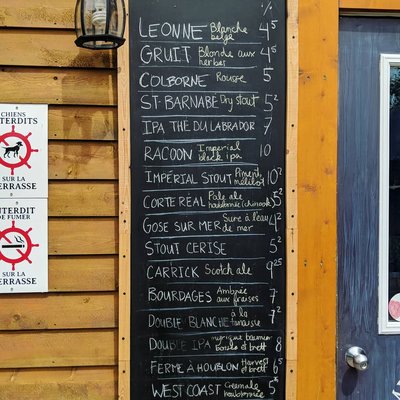 %
LEONNE Blanche belge 4⁵
GRUIT Blonde aux herbes 4⁵
COLBORNE Rousse 5
ST-BARNABÉ Dry stout 5²
IPA THÉ DU LABRADOR 7
RACOON Imperial black ipa 10
IMPÉRIAL STOUT Piment, mélilot 10²
CORTE REAL Pale ale houblonnée (chinook) 5²
GOSE SUR MER Sure à l'eau de mer 4²
STOUT CERISE 5²
CARRICK Scotch ale 9²⁵
BOURDAGES Ambrée aux fraises 7
DOUBLE BLANCHE à la 7²
DOUBLE IPA myrique baumier et brett 8
FERME À HOUBLON Harvest et brett 6⁵
WEST COAST Creamale houblonnée 5
CHIENS
INTERDITS
SUR LA
TERRASSE
INTERDIT
DE FUMER
SUR LA
TERRASSE